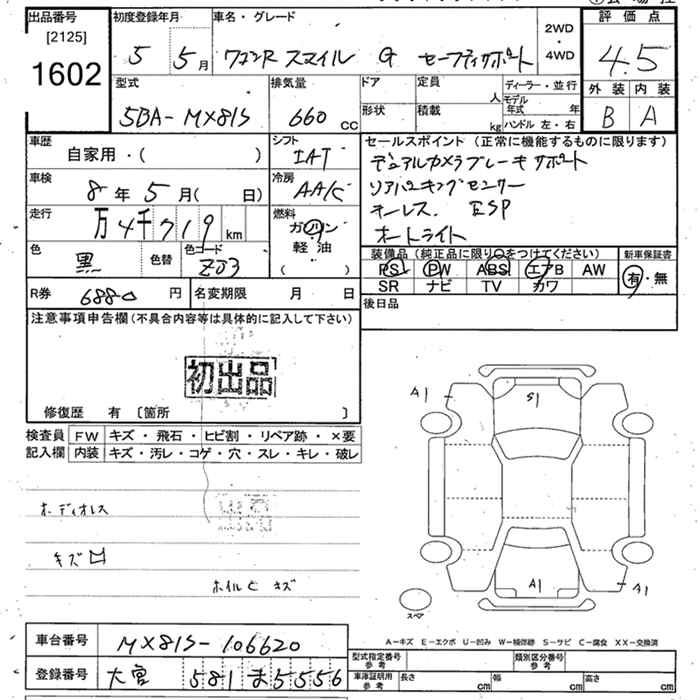 出品番号
[2125]
1602
初度登録年月
5 5月
車名・グレード
ワゴンR スマイル G セーフティサポート
2WD
・
4WD
評価点
4.5
外装 内装
B A
型式
5BA-MX81S
排気量
660 cc
ドア 定員 人
形状 積載 kg
ディーラー・並行
モデル年式 年
ハンドル 左・右
車歴
自家用・( )
シフト
IAT
車検
8年5月( 日)
冷房
AAC
走行
万4千719km
燃料
ガソリン
軽油
( )
色
黒
色替
色コード
Z03
R券 6880円
名変期限 月 日
セールスポイント (正常に機能するものに限ります)
デュアルカメラブレーキサポート
リアパーキングセンサー
キーレス. ESP
オートライト
装備品(純正品に限り○をつけてください)
PS PW ABS エアB AW
SR ナビ TV カワ
新車保証書
有・無
後日品
注意事項申告欄(不具合内容等は具体的に記入して下さい)
初出品
修復歴 有 〔箇所 〕
検査員 FW キズ・飛石・ヒビ割・リペア跡・×要
記入欄 内装 キズ・汚レ・コゲ・穴・スレ・キレ・破レ
オーディオレス
キズ凹
ホイルヒキズ
A1
S1
A1
A1
スペア
A-キズ E-エクボ U-凹み W-補修跡 S-サビ C-腐食 XX-交換済
車台番号 MX81S-106620
登録番号 大宮 581 ま5556
型式指定番号
参考
類別区分番号
参考
車庫証明用
参考
長さ cm 幅 cm 高さ cm